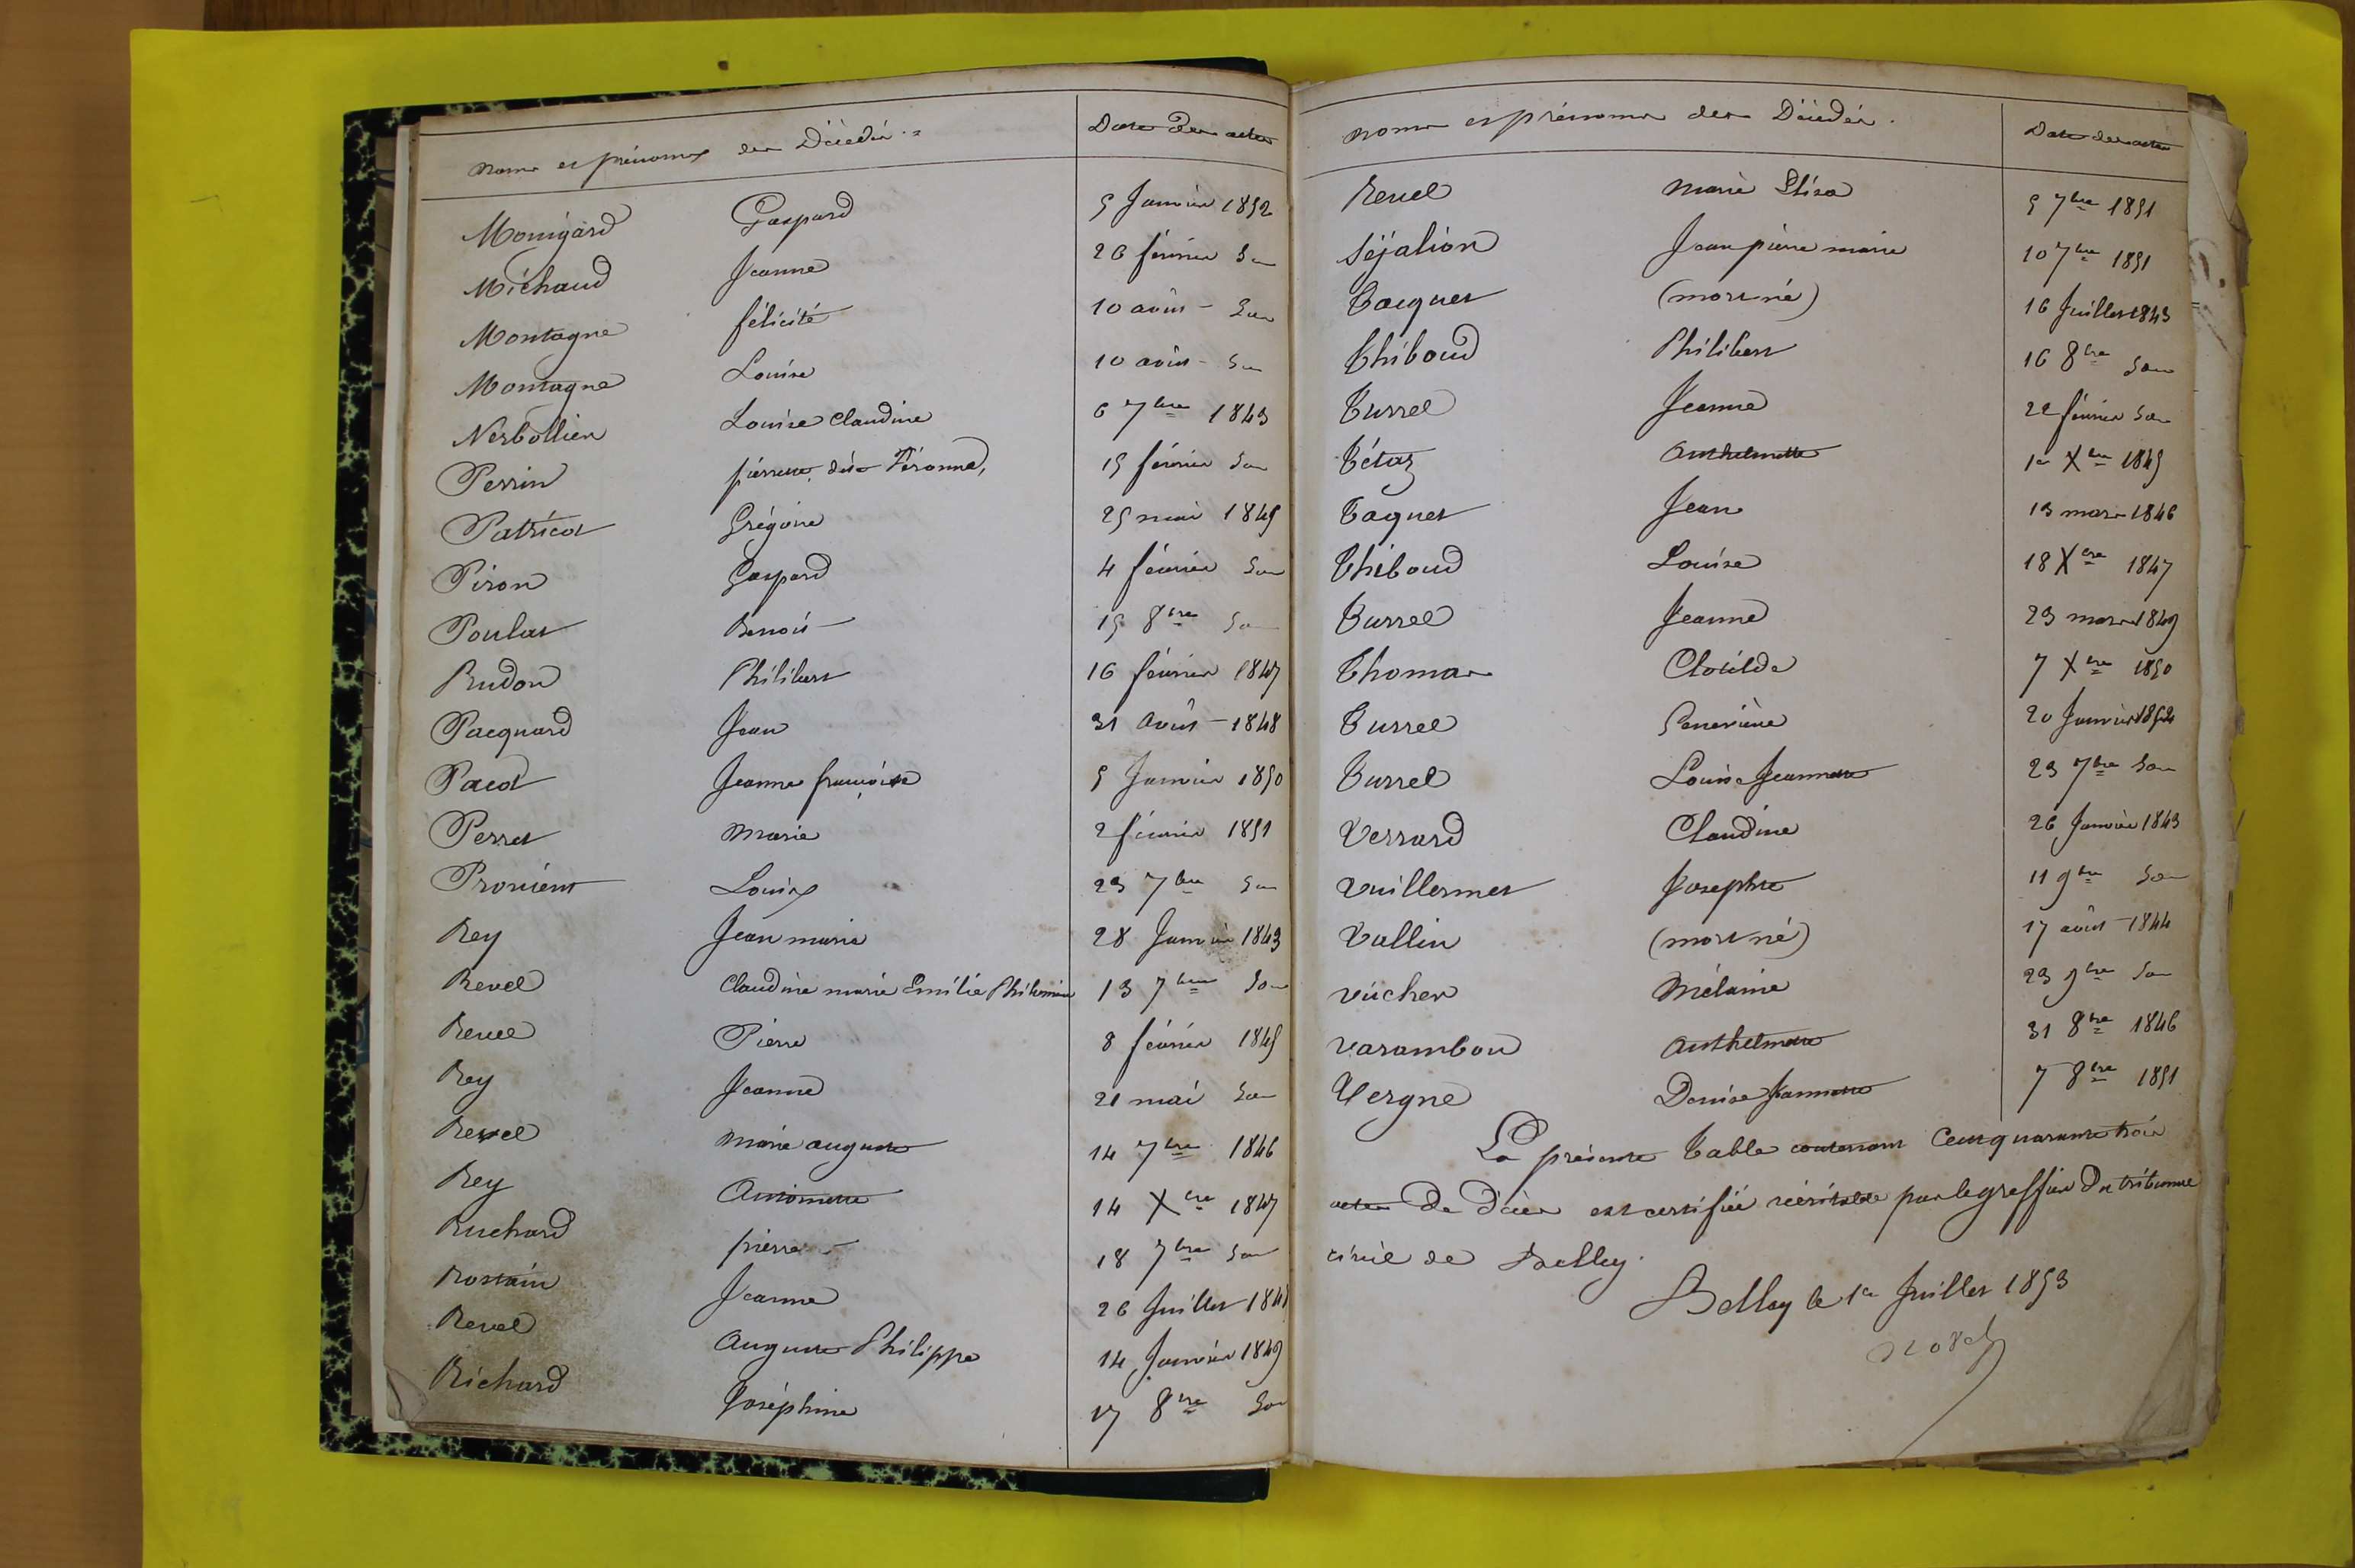 Noms et prénoms des Décédés. Date des actes
Monigard Gaspard 5 Janvier 1852
Michaud Jeanne 26 février dn
Montagne félicité 10 août dn
Montagne Louise 10 août dn
Nerbollier Louise Claudine 6 7bre 1843
Perrin pierrette dite Féronne, 15 février dn
Patricot Grégoire 25 mai 1845
Piron Gaspard 4 février dn
Poulat Benoit 15 8bre dn
Prudon Philibert 16 février 1847
Pacquard Jean 31 Août 1848
Pacot Jeanne françoise 5 Janvier 1850
Perret Marie 2 février 1851
Provient Louis 23 7bre dn
Rey Jean marie 28 Janvier 1843
Revel Claudine marie Emilie Philomène 13 7bre dn
Revel Pierre 8 février 1845
Rey Jeanne 21 mai dn
Revel Marie auguste 14 7bre 1846
Rey Antoinette 14 Xbre 1847
Ruchard pierre 18 7bre dn
Rostain Jeanne 26 Juillet
Revel Auguste Philippe 14 Janvier 1849
Richard Joséphine 17 8bre dn
Noms et prénoms des Décédés. Date des actes
Revel Marie Eliza 5 7bre 1851
Séjalion Jean pierre marie 10 7bre 1851
Tacquet (mort né) 16 Juillet 1843
Thiboud Philibert 16 8bre dn
Turrel Jeanne 22 février dn
Tétaz Anthelmette 1er Xbre 1845
Taquet Jean 13 mars 1846
Thiboud Louise 18 Xbre 1847
Turrel Jeanne 23 mars 1849
Thomas Clotilde 7 Xbre 1850
Turrel Geneviève 20 Janvier 1852
Turrel Louise Jeannette 23 7bre dn
Verrard Claudine 26 Janvier 1843
Vuillermet Josephte 11 9bre dn
Vallin (mort né) 17 août 1844
Vucher Mélanie 23 9bre dn
Varambon Anthelmette 31 8bre 1846
Vergne Denise Jeannette 7 8bre 1851
La présente Table contenant Cent quarante trois
actes de décès est certifiée véritable par le greffier du tribunal
civil de Belley.
Belley le 1er Juillet 1853